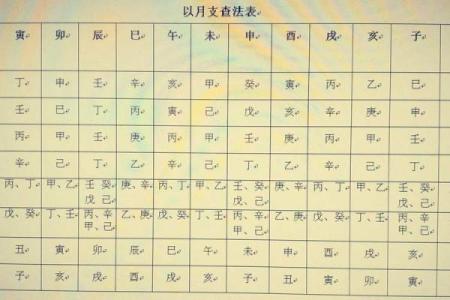 以月支查法表
寅 卯 辰 巳 午 未 申 酉 戌 亥 子
丁 申 壬 辛 亥 甲 癸 寅 丙 乙 巳
壬 巳 丁 丙 寅 己 戊 亥 辛 庚 申
丙 甲 壬 庚 丙 甲 壬 庚 丙 甲 壬
辛 己 丁 乙 辛 己 丁 乙 辛 己 丁
丙、丁 甲、乙 壬、癸 庚、辛 丙、丁 甲、乙 壬、癸 庚、辛 丙、丁 甲、乙 壬、癸
戊 己 戊、己 戊、己
戊、癸 丁、壬 丙、辛 乙、庚 戊、癸 丁、壬 丙、辛 乙、庚 戊、癸 丁、壬 丙、辛
甲、己 甲、己 甲、己
丑 寅 卯 辰 巳 午 未 申 酉 戌 亥
子 亥 戌 酉 戌 亥 子 丑 寅 卯 寅